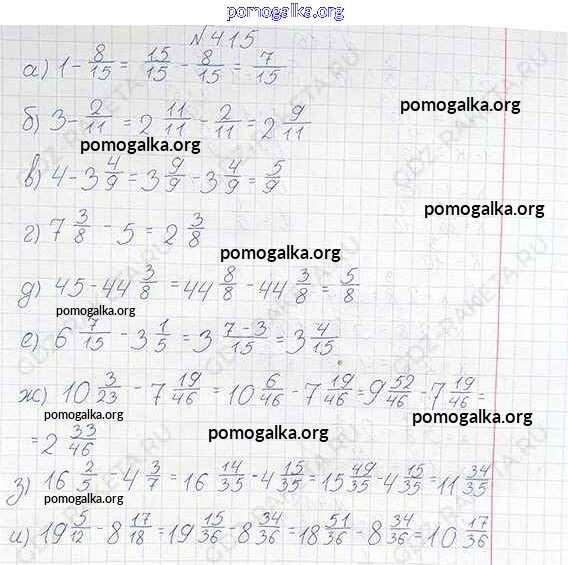 pomogalka.org
№415
а) 1 - 8/15 = 15/15 - 8/15 = 7/15
pomogalka.org
б) 3 - 2/11 = 2 11/11 - 2/11 = 2 9/11
pomogalka.org
в) 4 - 3 4/9 = 3 9/9 - 3 4/9 = 5/9
pomogalka.org
г) 7 3/8 - 5 = 2 3/8
pomogalka.org
д) 45 - 44 3/8 = 44 8/8 - 44 3/8 = 5/8
pomogalka.org
е) 6 7/15 - 3 1/5 = 3 (7-3)/15 = 3 4/15
pomogalka.org
ж) 10 3/23 - 7 19/46 = 10 6/46 - 7 19/46 = 9 52/46 - 7 19/46 =
pomogalka.org
pomogalka.org
= 2 33/46
pomogalka.org
з) 16 2/5 - 4 3/7 = 16 14/35 - 4 15/35 = 15 49/35 - 4 15/35 = 11 34/35
pomogalka.org
и) 19 5/12 - 8 17/18 = 19 15/36 - 8 34/36 = 18 51/36 - 8 34/36 = 10 17/36
GDZ-RAKETA.RU